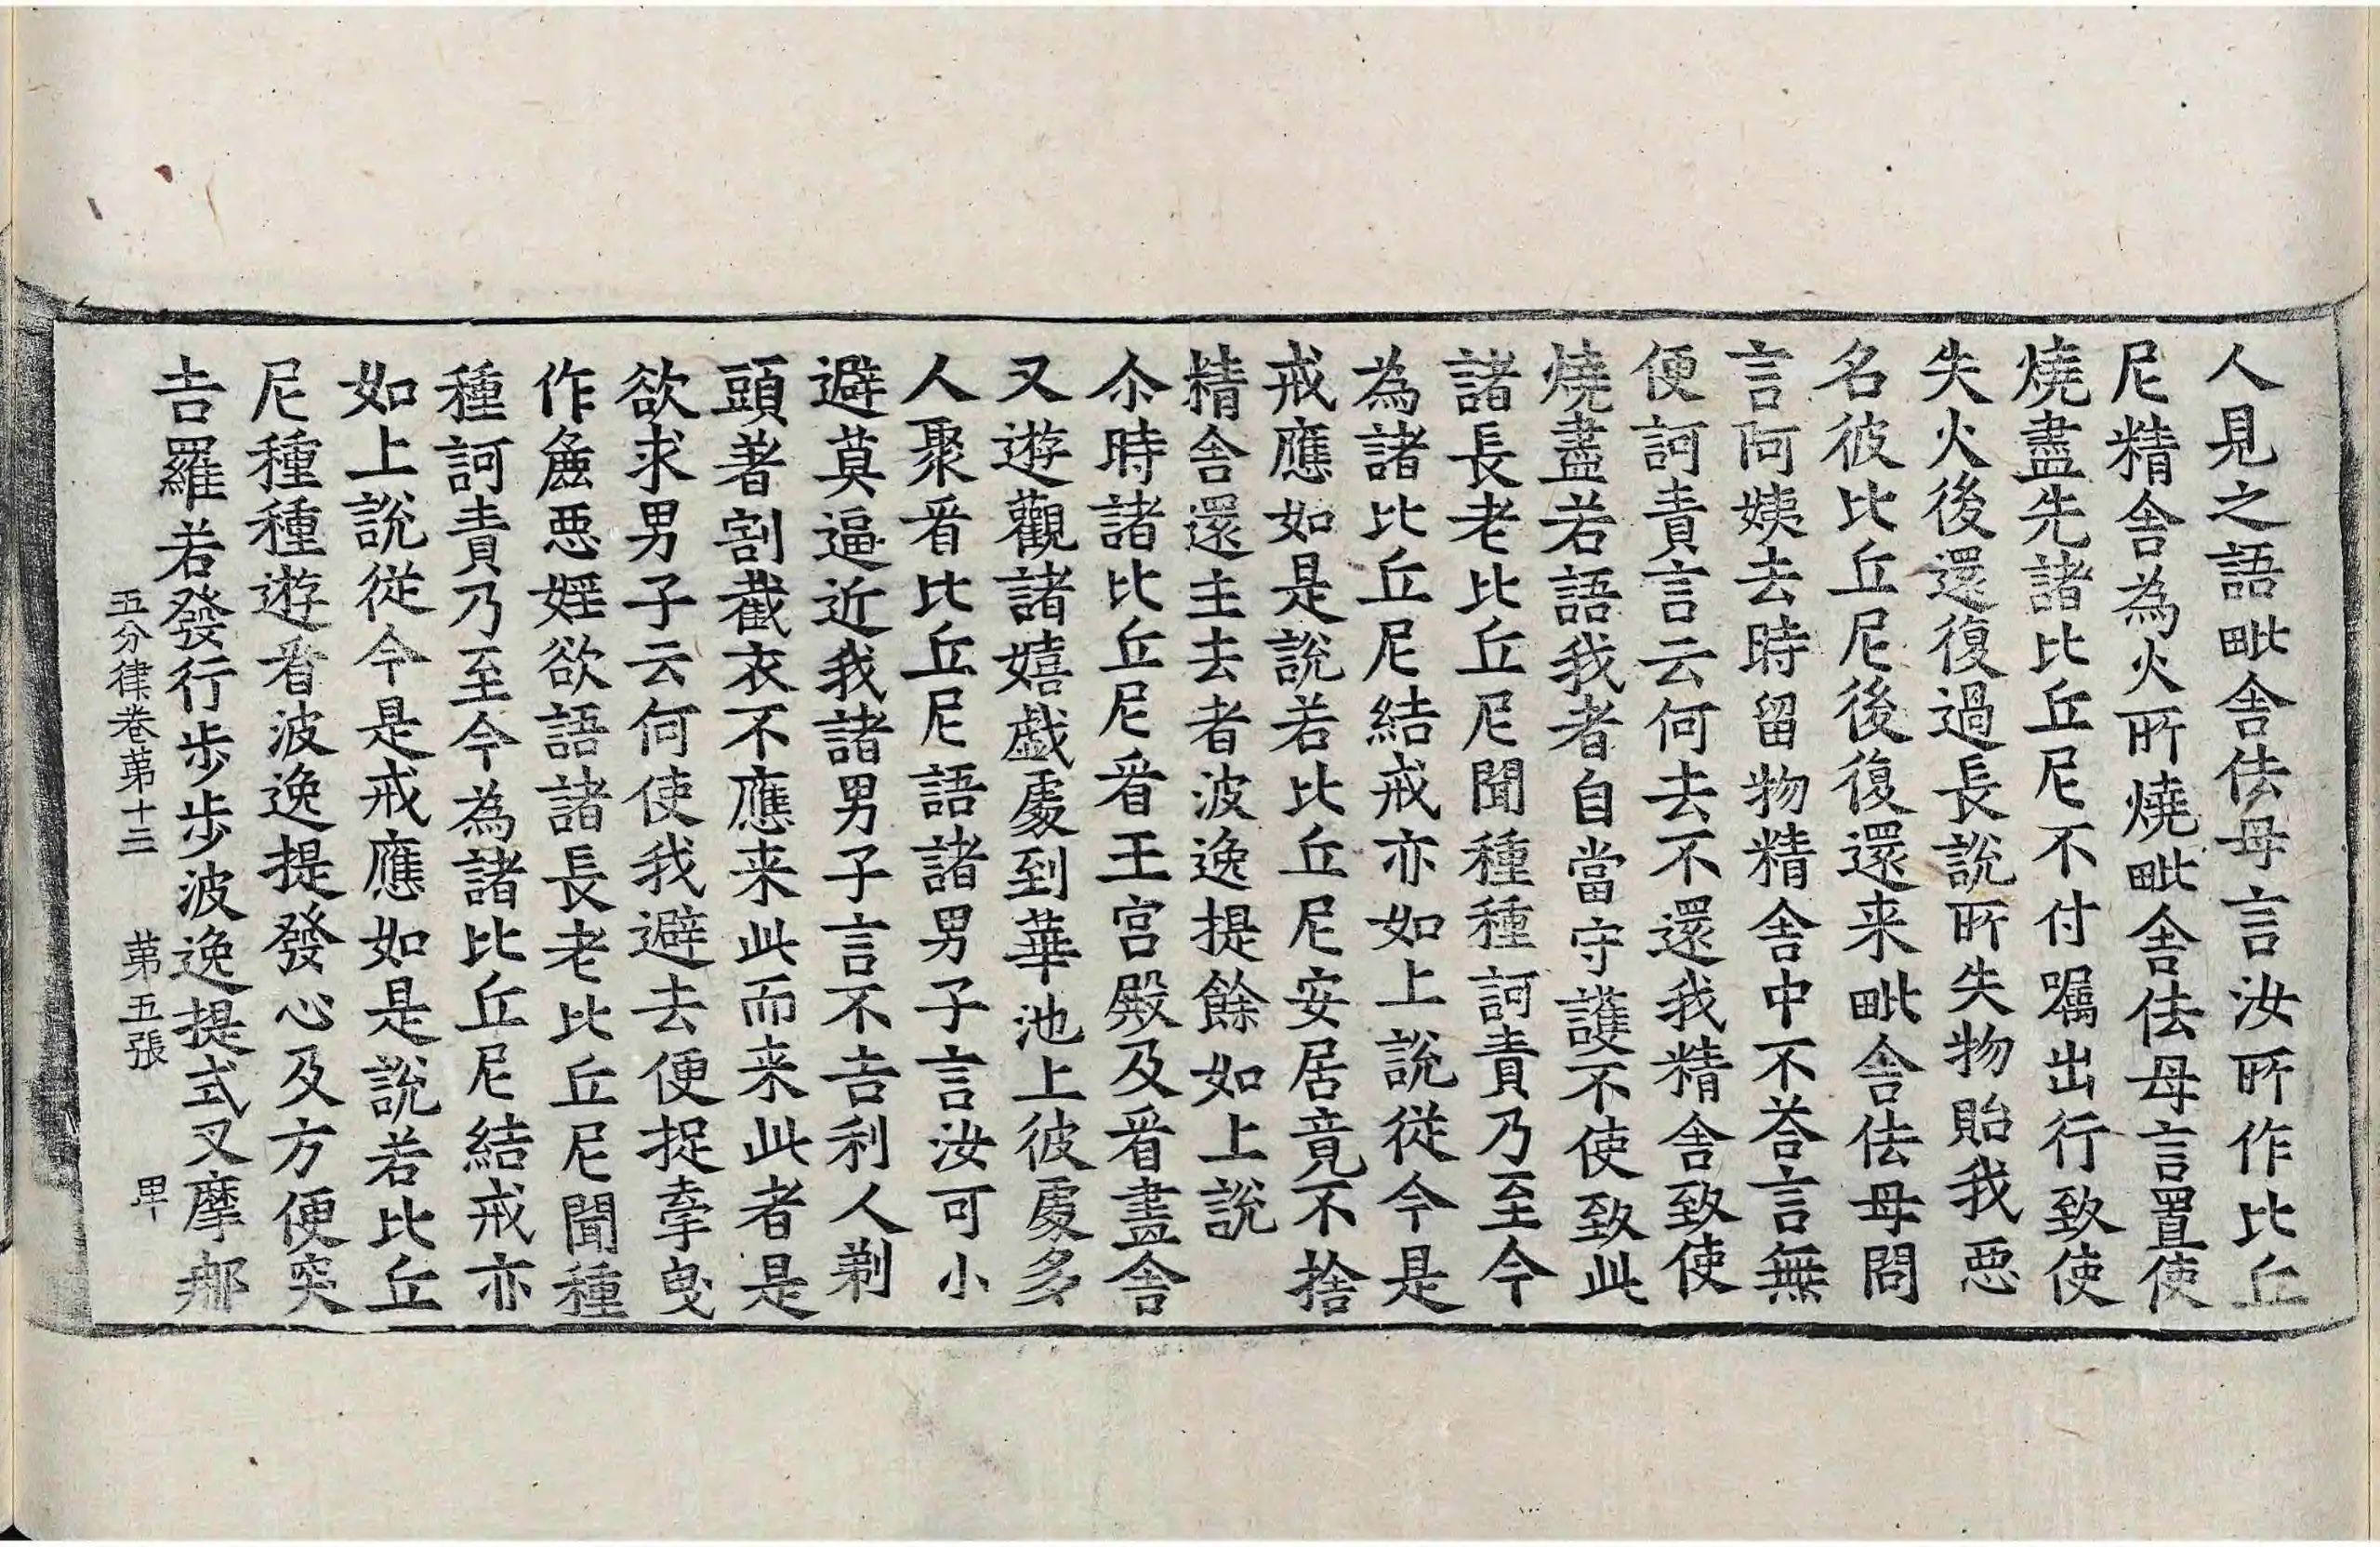 人見之語毗舍佉母言汝所作比丘
尼精舍為火所燒毗舍佉母言置使
燒盡先諸比丘尼不付囑出行致使
失火後還復過長說所失物貽我惡
名彼比丘尼後復還来毗舍佉母問
言阿姨去時留物精舍中不荅言無
便訶責言云何去不還我精舍致使
燒盡若語我者自當守護不使致此
諸長老比丘尼聞種種訶責乃至今
為諸比丘尼結戒亦如上說從今是
戒應如是說若比丘尼安居竟不捨
精舍還主去者波逸提餘如上說
尒時諸比丘尼㸔王宮殿及㸔畫舍
又遊觀諸嬉戯處到華池上彼處多
人聚㸔比丘尼語諸男子言汝可小
避莫逼近我諸男子言不吉利人剃
頭著割截衣不應来此而来此者是
欲求男子云何使我避去便捉牽曳
作麁惡婬欲語諸長老比丘尼聞種
種訶責乃至今為諸比丘尼結戒亦
如上說從今是戒應如是說若比丘
尼種種遊㸔波逸提發心及方便突
吉羅若發行步步波逸提式叉摩那
五分律卷苐十三 苐五張 甲